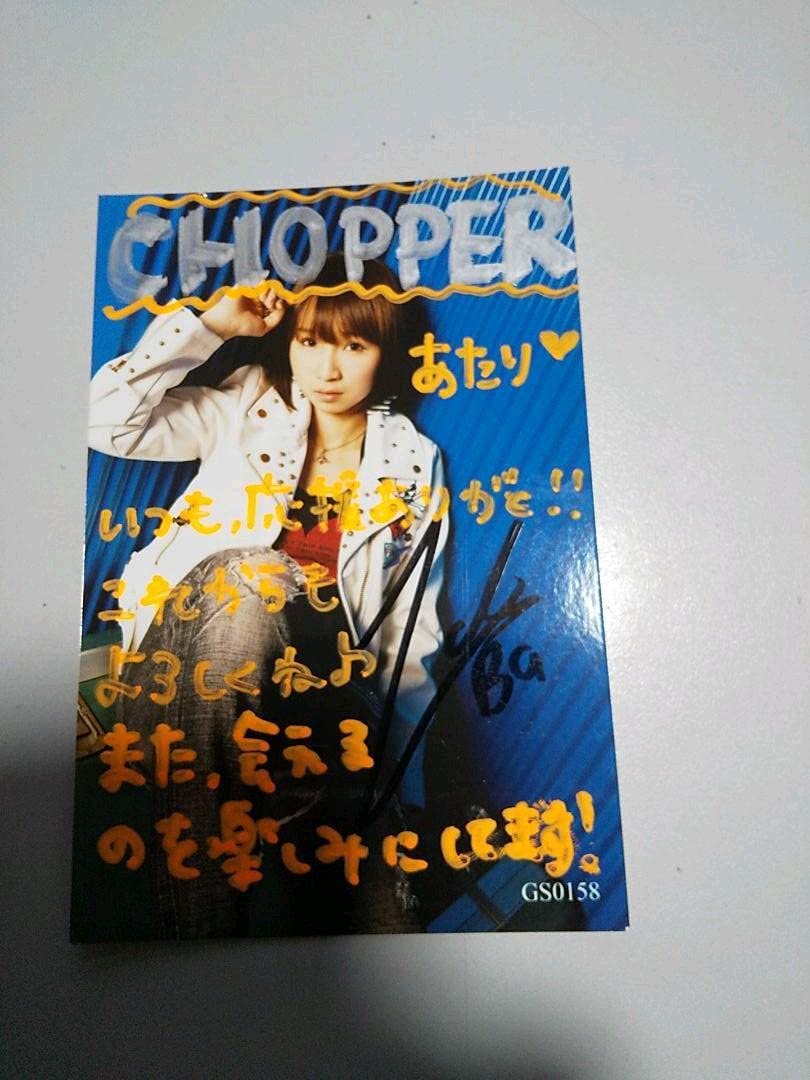 CHOPPER
あたり♡
いつも、応援ありがと!!
これからも
よろしくね♪
また、会える
のを楽しみにしてます!
GS0158